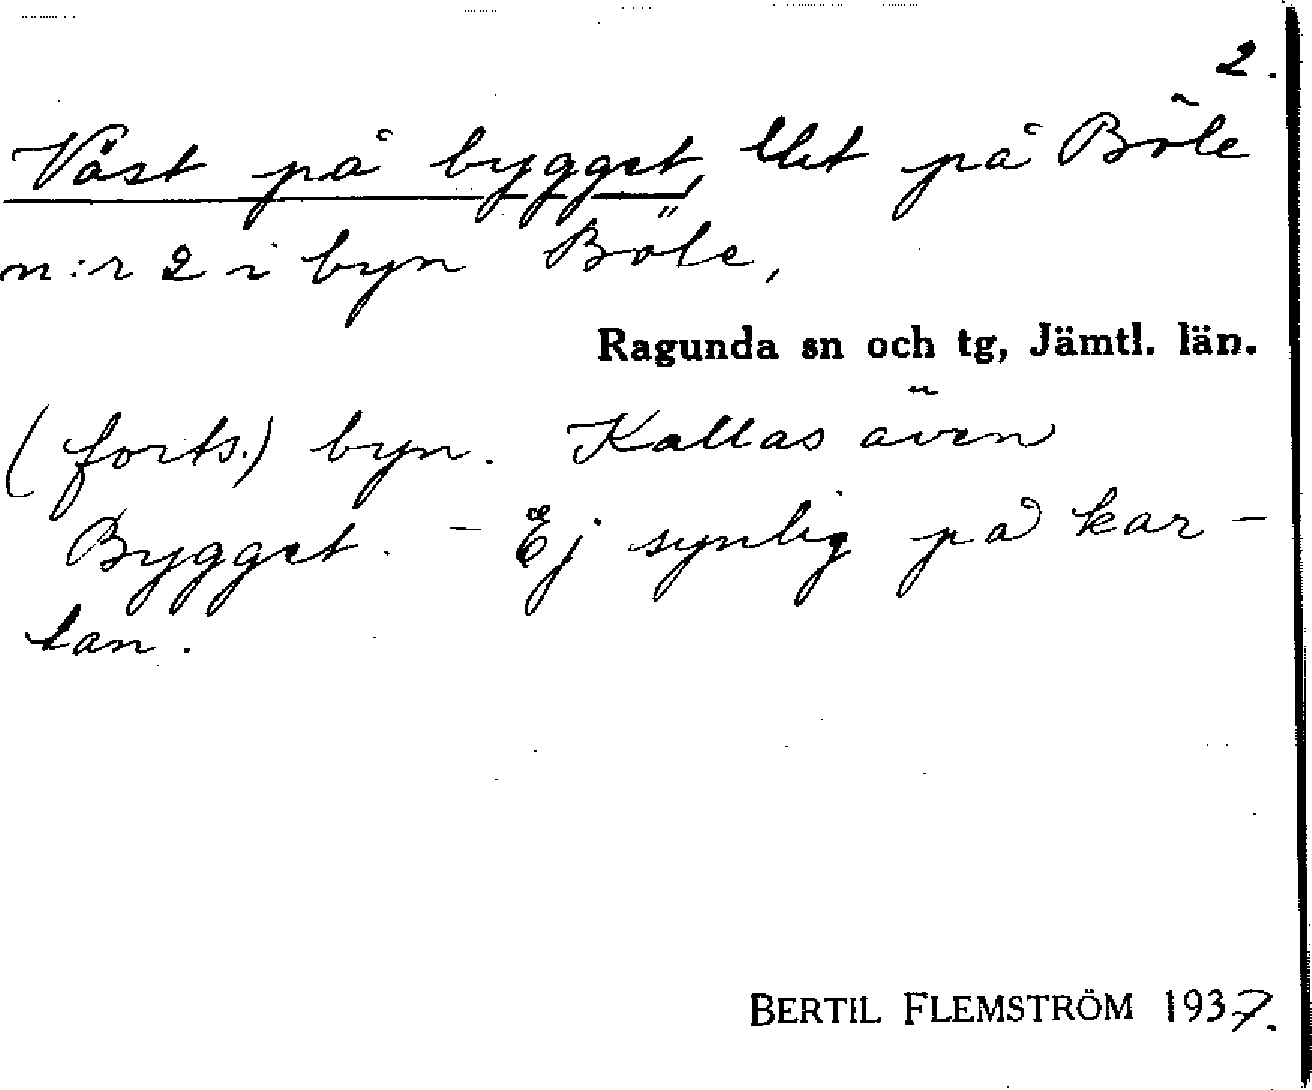 2.
Väst på bygget, lht på Böle
n:r 2 i byn Böle,
Ragunda sn och tg, Jämtl. län.
(forts.) byn. Kallas även
Bygget. - Ej synlig på kar-
tan.
BERTIL FLEMSTRÖM 1937.